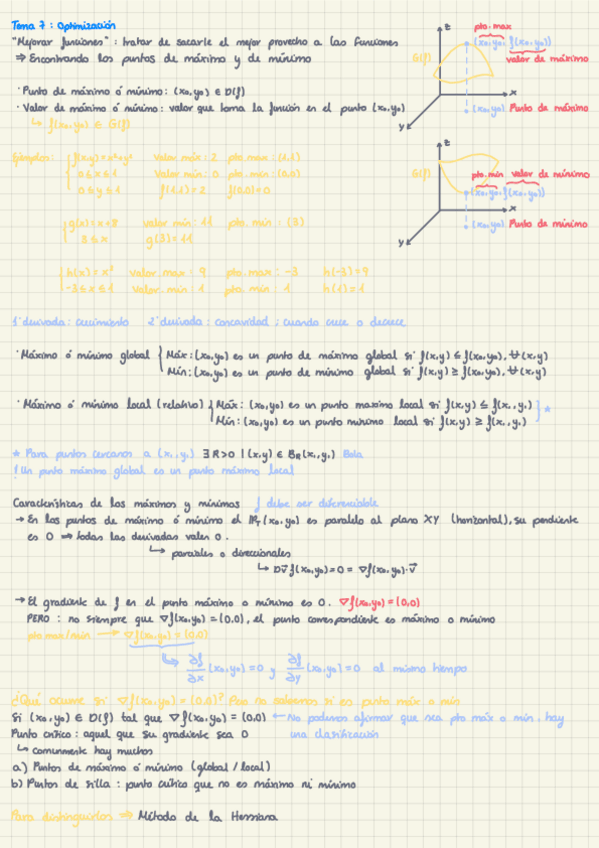 Tema 7: Optimización
"Mejorar funciones": tratar de sacarle el mejor provecho a las funciones
⇒ Encontrando los puntos de máximo y de mínimo
· Punto de máximo ó mínimo: (x₀,y₀) ∈ D(f)
· Valor de máximo ó mínimo: valor que toma la función en el punto (x₀,y₀)
↳ f(x₀,y₀) ∈ G(f)
z
pto. max
(x₀,y₀, f(x₀,y₀))
G(f)
valor de máximo
x
(x₀,y₀) Punto de máximo
y
z
G(f)
pto. min valor de mínimo
(x₀,y₀, f(x₀,y₀))
x
(x₀,y₀) Punto de mínimo
y
Ejemplos: f(x,y)=x²+y² valor máx: 2 pto. max: (1,1)
0≤x≤1 valor mín: 0 pto. mín: (0,0)
0≤y≤1 f(1,1)=2 f(0,0)=0
g(x)=x+8 valor mín: 11 pto. mín: (3)
3≤x g(3)=11
h(x)=x² valor max: 9 pto. max: -3 h(-3)=9
-3≤x≤1 valor. mín: 1 pto. mín: 1 h(1)=1
1ªderivada: crecimiento 2ªderivada: concavidad; cuando crece o decrece
· Máximo ó mínimo global { Máx: (x₀,y₀) es un punto de máximo global si f(x,y) ≤ f(x₀,y₀), ∀(x,y)
Mín: (x₀,y₀) es un punto de mínimo global si f(x,y) ≥ f(x₀,y₀), ∀(x,y)
· Máximo ó mínimo local (relativo) { Máx: (x₀,y₀) es un punto maximo local si f(x,y) ≤ f(x₀,y₀) } *
Mín: (x₀,y₀) es un punto minimo local si f(x,y) ≥ f(x₀,y₀)
* Para puntos cercanos a (x₀,y₀) ∃ R>0 | (x,y) ∈ B_R(x₀,y₀) Bola
! Un punto máximo global es un punto máximo local
Características de los máximos y mínimos f debe ser diferenciable
→ En los puntos de máximo ó mínimo el (x₀,y₀) es paralelo al plano XY (horizontal), su pendiente
es 0 ⇒ todas las derivadas valen 0.
↳ parciales o direccionales
↳ D_v f(x₀,y₀)=0 = ∇f(x₀,y₀)·v⃗
→ El gradiente de f en el punto máximo o mínimo es 0. ∇f(x₀,y₀)=(0,0)
PERO: no siempre que ∇f(x₀,y₀)=(0,0), el punto correspondiente es máximo o mínimo
pto.max/min ⟶ ∇f(x₀,y₀)=(0,0)
↳ ∂f/∂x (x₀,y₀)=0 y ∂f/∂y (x₀,y₀)=0 al mismo tiempo
¿Qué ocurre si ∇f(x₀,y₀)=(0,0)? Pero no sabemos si es punto máx o mín
Si (x₀,y₀) ∈ D(f) tal que ∇f(x₀,y₀)=(0,0) ← No podemos afirmar que sea pto máx o mín. hay
Punto crítico: aquel que su gradiente sea 0 una clasificación
↳ comunmente hay muchos
a) Puntos de máximo ó mínimo (global/local)
b) Puntos de silla: punto crítico que no es máximo ni mínimo
Para distinguirlos ⇒ Método de la Hessiana